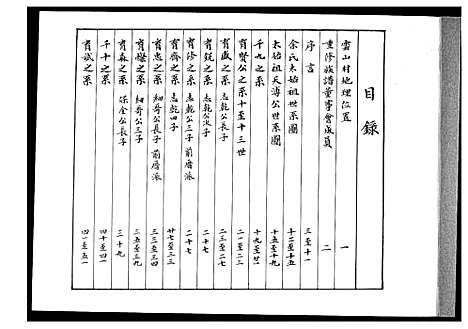 目錄
雲山村地理位置 一
重修族譜董事會成員 二
序言 三至十一
余氏太始祖世系圖 十二至十五
太始祖天海公世系圖 十五至十九
千九之系 十九至廿一
育賢公之系十至十三世 二一至二三
育盛之系 志乾公長子 二三至二七
育銳之系 志乾公次子 二十七
育修之系 志乾公三子 前磨派 二十七
育齋之系 志乾四子 廿七至三三
育忠之系 細哥公長子 前磨派 三三至三四
育燦之系 細哥公三子 三五至三九
育森之系 保余公長子 三十九
千十之系 四十至四一
育斌之系 四一至五一